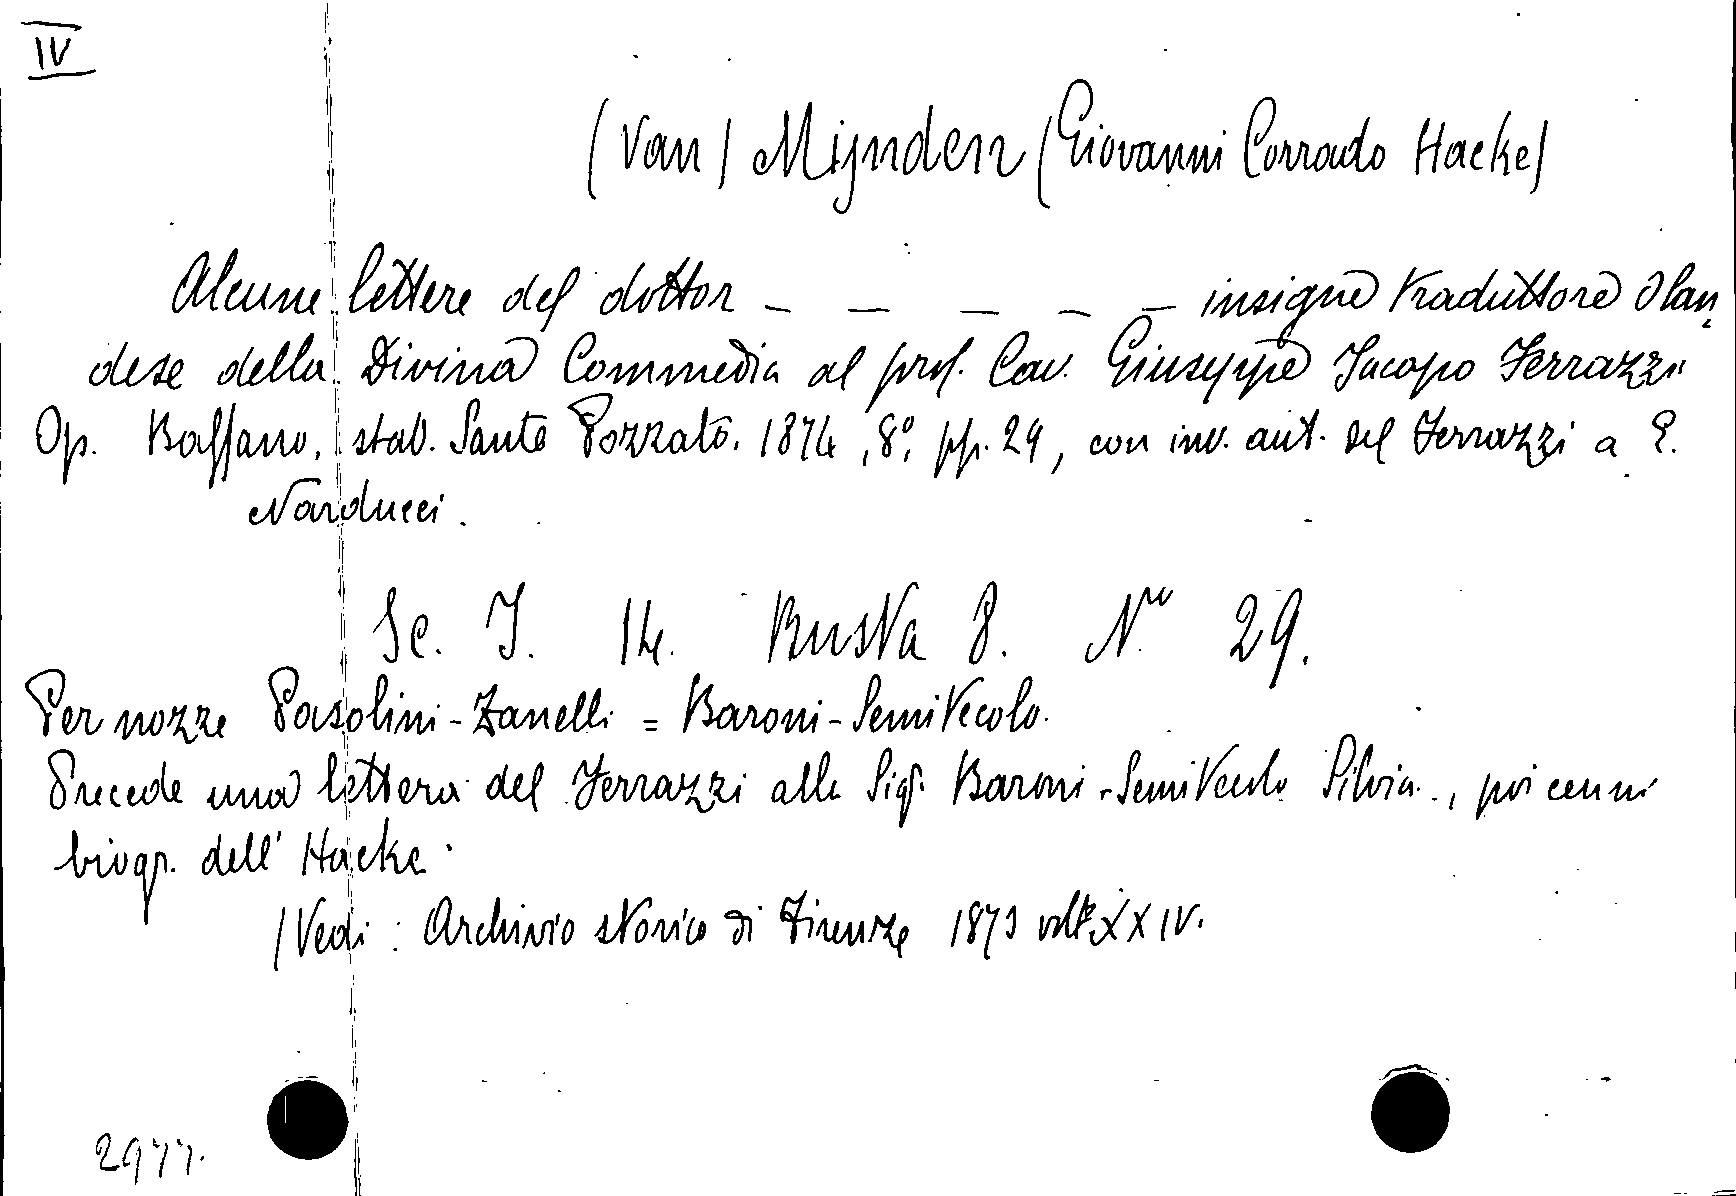 IV
(Van) Mijnden (Giovanni Corrado Hacke)
Alcune lettere del dottor _ _ _ _ _ insigne traduttore Olan
dese della Divina Commedia al prof. Cav. Giuseppe Jacopo Ferrazzi
Op. Bassano, stab. Sante Pozzato. 1874, 8º, pp. 29, con inv. aut. del Ferrazzi a E.
Narducci.
Sc. I. 14. Busta 8. Nº 29.
Per nozze Pasolini-Zanelli = Baroni-Semitecolo.
Precede una lettera del Ferrazzi alla Sigª Baroni-Semitecolo Silvia, poi cenni
biogr. dell' Hacke.
/Vedi: Archivio storico di Firenze 1873 XXIV.
2977.